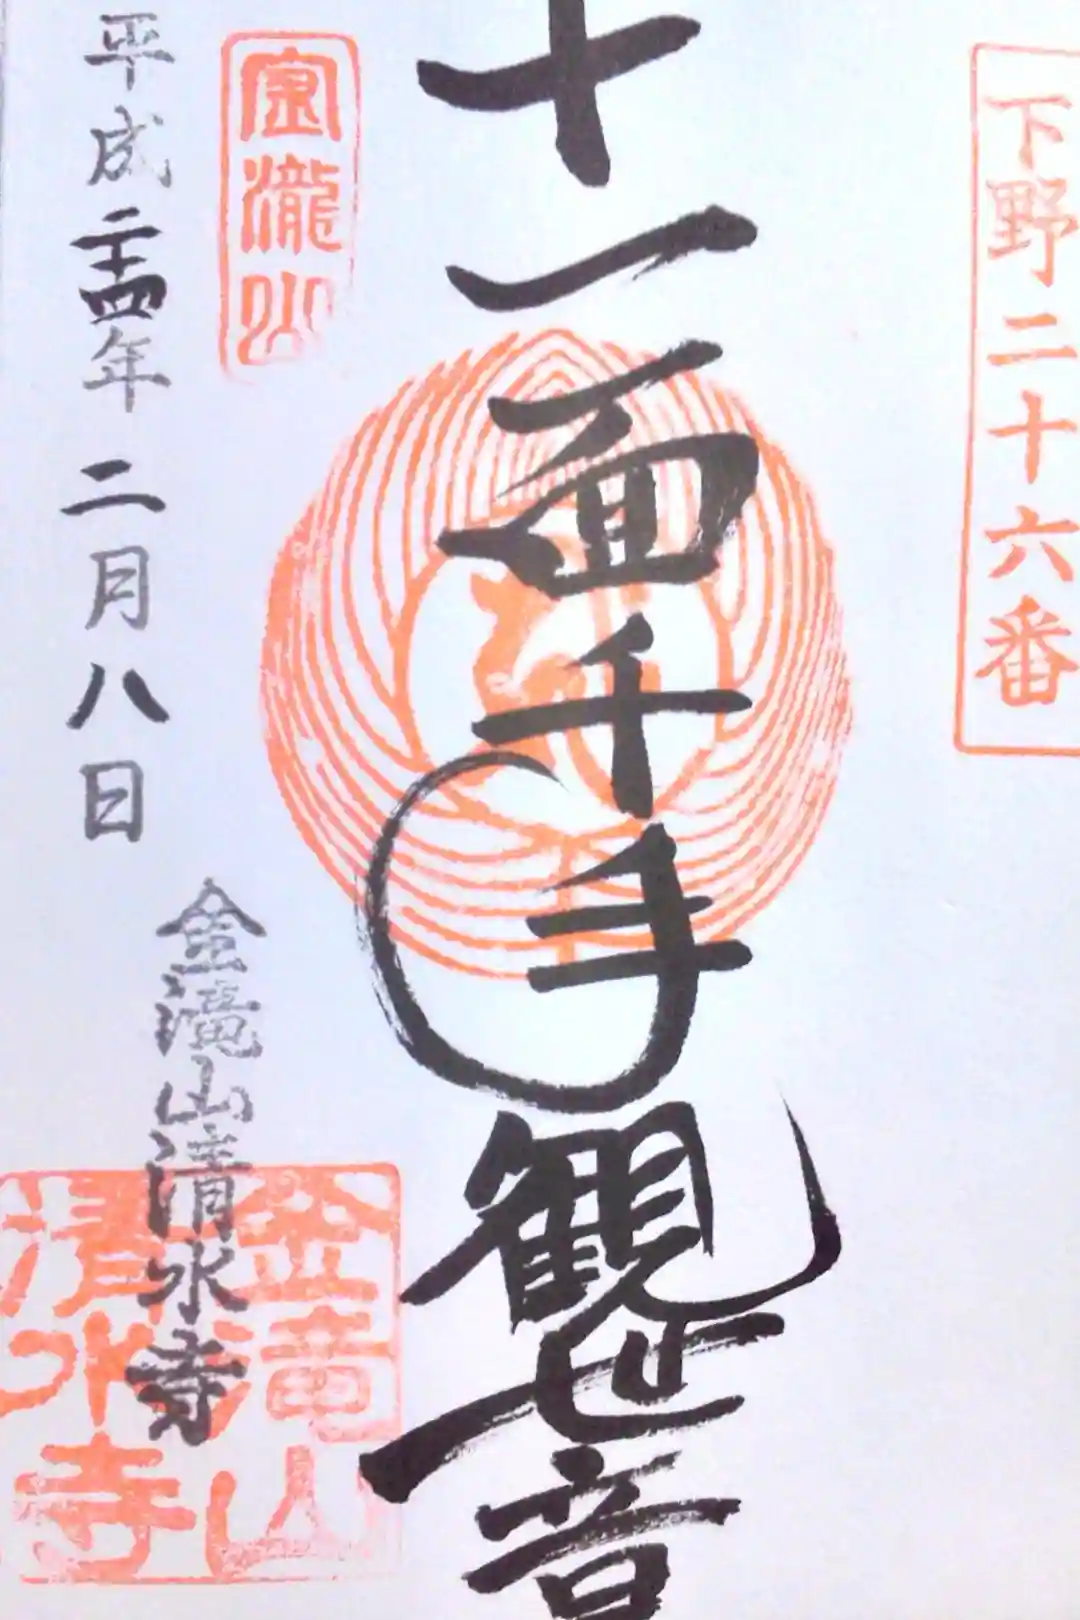 下野二十六番
十一面千手観世音
金瀧山
平成二十四年二月八日
金滝山清水寺
金竜山
清水寺